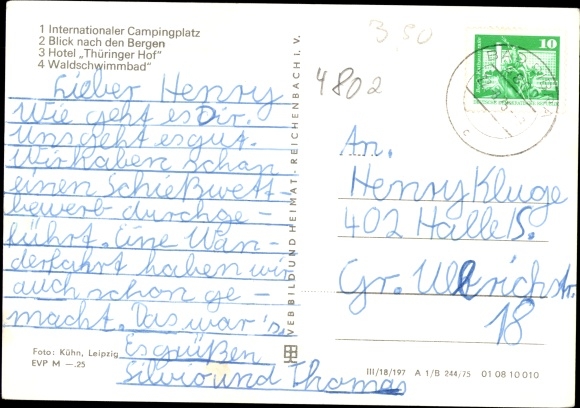 1 Internationaler Campingplatz
2 Blick nach den Bergen
3 Hotel „Thüringer Hof"
4 Waldschwimmbad"
Lieber Henry
Wie geht es Dir.
Uns geht es gut.
Wir haben schon
einen Schießwett-
bewerb durchge-
führt. Eine Wan-
derfahrt haben wir
auch schon ge-
macht. Das war's.
Es grüßen
Silvio und Thomas
Foto: Kühn, Leipzig
EVP M —.25
VEB BILD UND HEIMAT · REICHENBACH i. V.
3.50
4802
10
An.
Henry Kluge
402 Halle/S.
Gr. Ullrichstr.
18
III/18/197 A 1/B 244/75 01 08 10 010